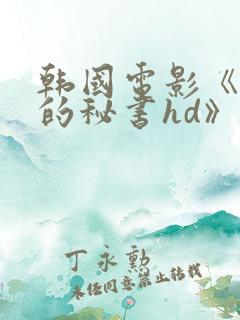 韩国电影《
的秘书hd》
丁永勲
未经同意禁止转载